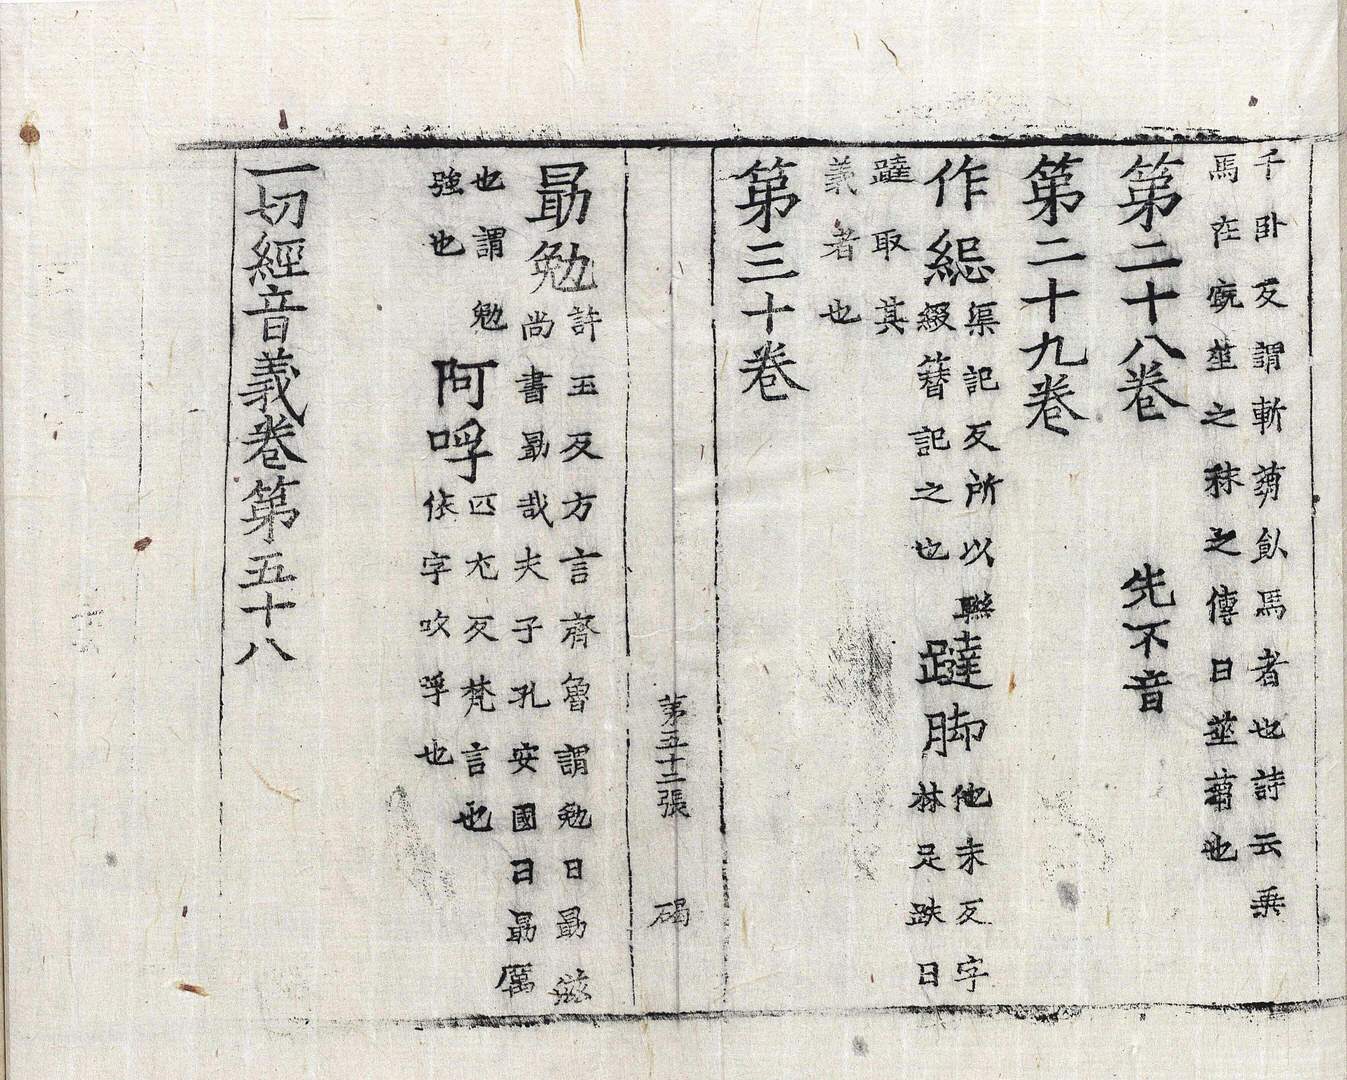 千卧反謂斬蒭飤馬者也詩云乗
馬在廐莝之秣之傳曰莝蒭也
第二十八卷 先不音
第二十九卷
作䋟渠記反所以聯
綴簪記之也
躂脚他未反字
林足跌曰
躂取其
義者也
第三十卷
第五十二張 碣
勗勉許玉反方言齊魯謂勉曰勗滋
尚書勗哉夫子孔安國曰勗厲
也謂勉
強也
阿呼匹尤反梵言也
依字吹呼也
一切經音義卷第五十八